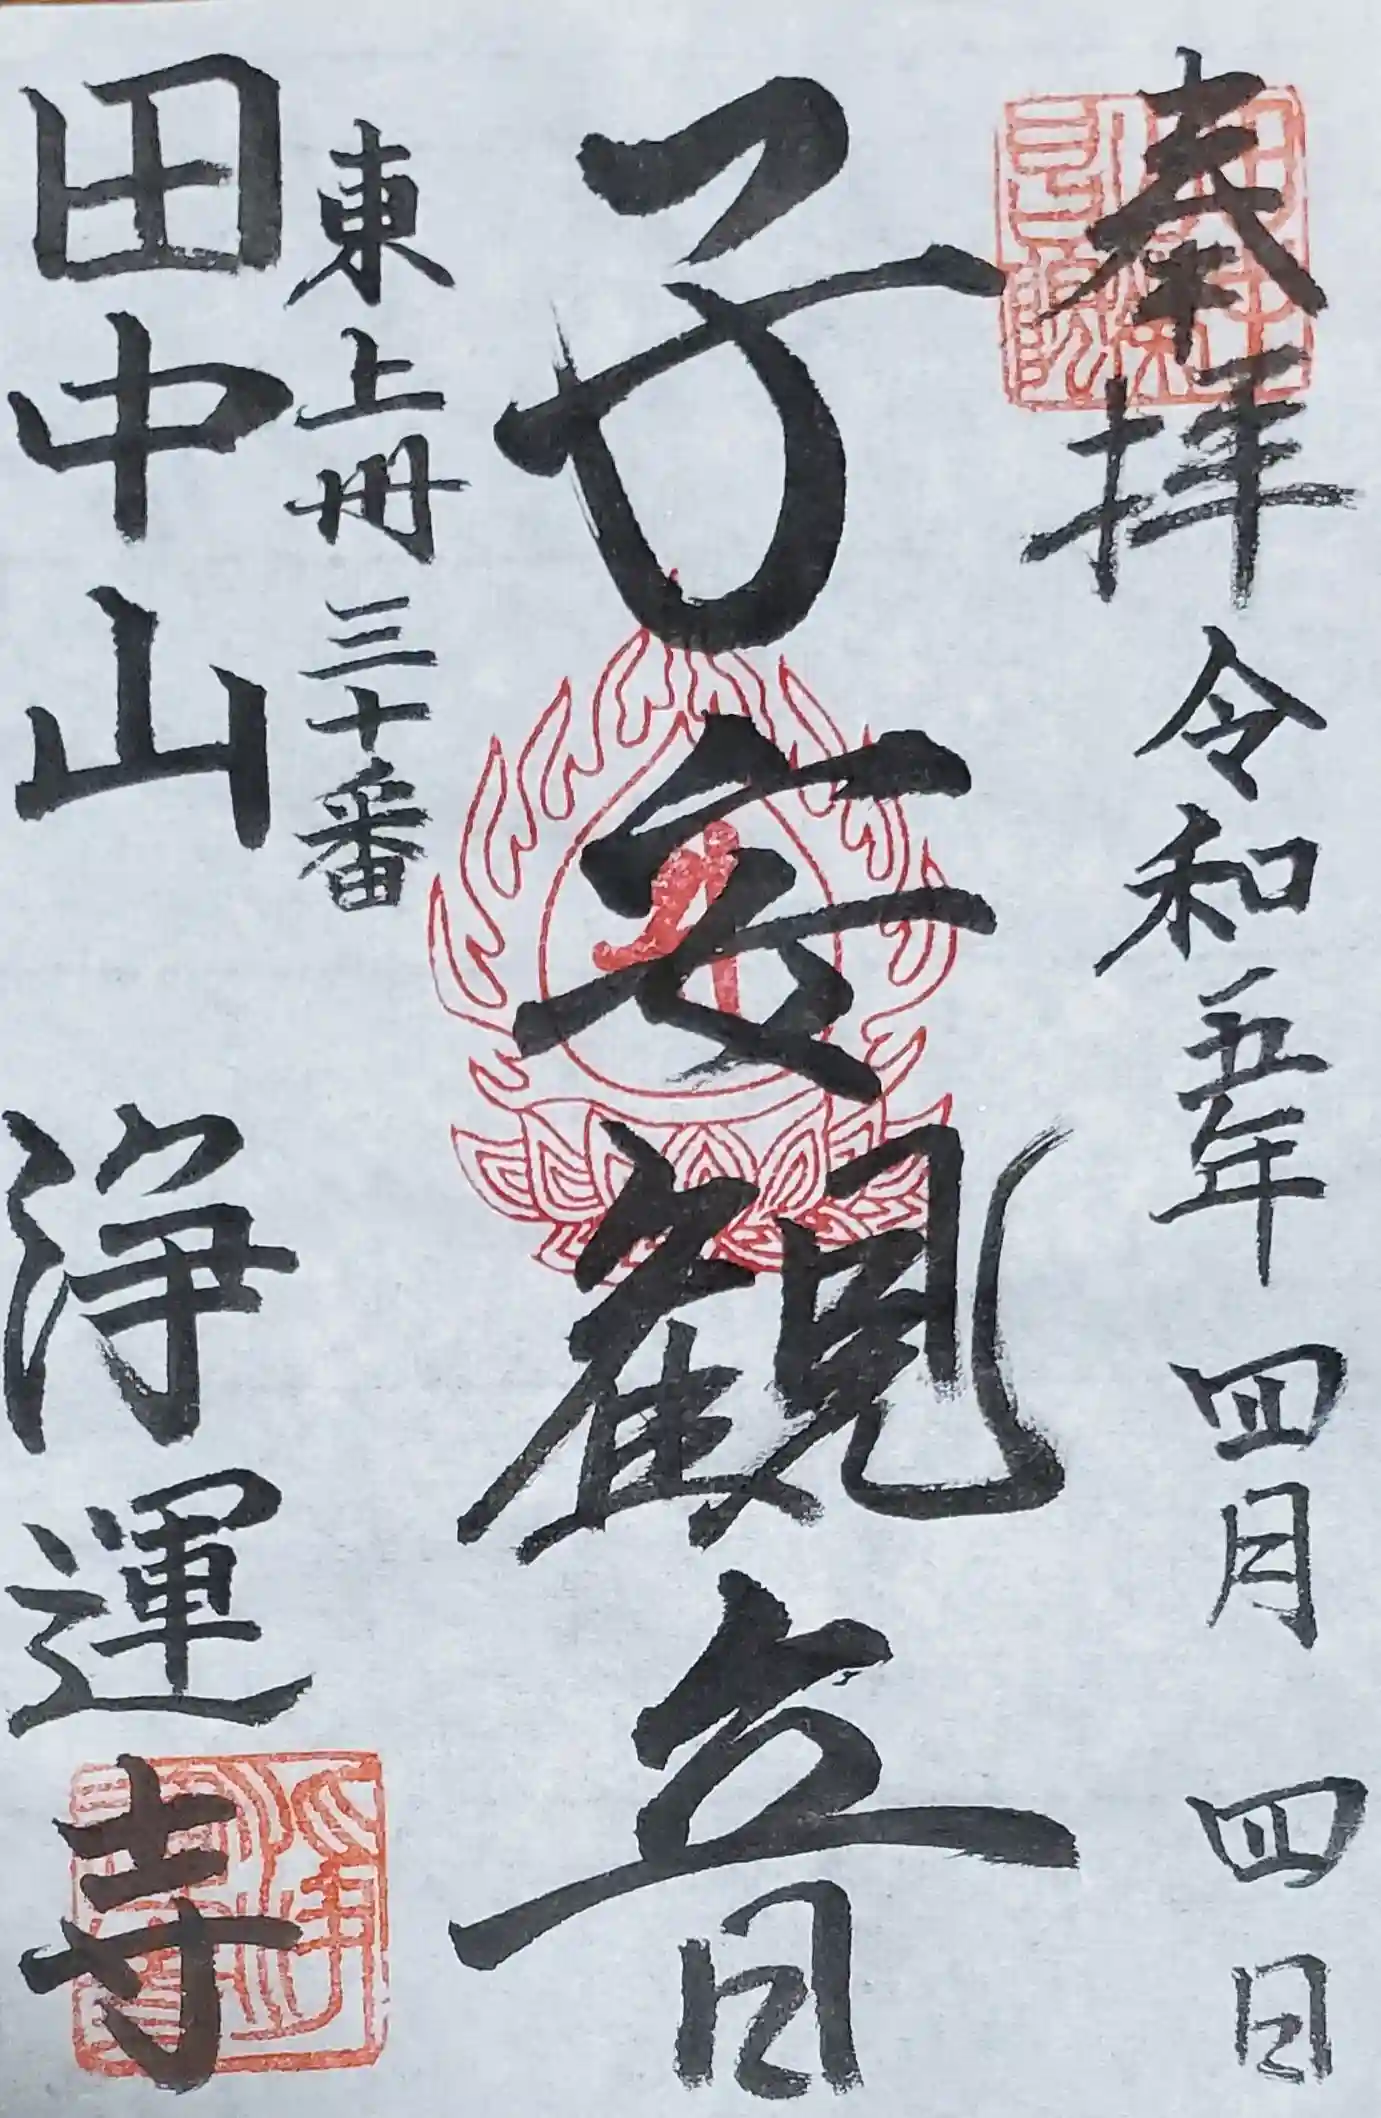 奉拝 令和五年 四月 四日
子安観音
東上卌三十番
田中山 浄運寺